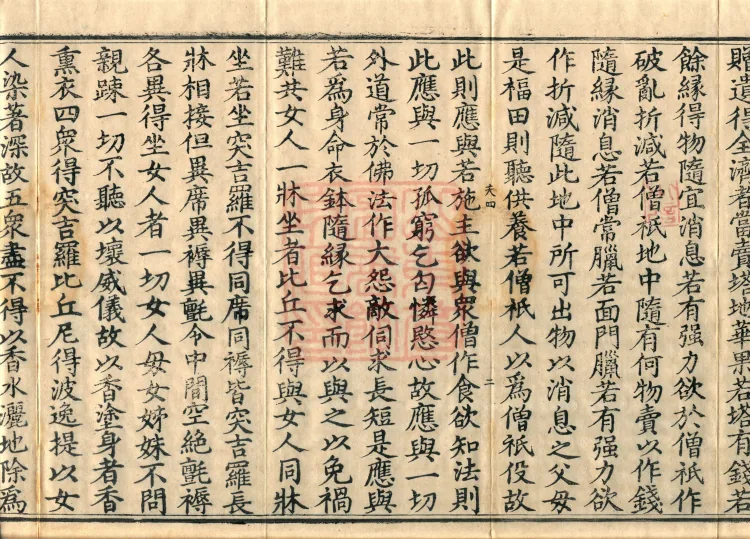 贈遺得全濟者當賣塔地華果若塔有錢若
餘緣得物隨宜消息若有强力欲於僧祇作
破亂折減若僧祇地中隨有何物賣以作錢
隨緣消息若僧常臘若面門臘若有强力欲
作折減隨此地中所可出物以消息之父母
是福田則聽供養若僧祇人以爲僧祇伇故
此則應與若施主欲與衆僧作食欲知法則
此應與一切孤窮乞匃憐愍心故應與一切
外道常於佛法作大怨敵伺求長短是應與
若爲身命衣鉢隨緣乞求而以與之以免禍
難共女人一牀坐者比丘不得與女人同牀
坐若坐突吉羅不得同席同褥皆突吉羅長
牀相接但異席異褥異氈令中間空絶氈褥
各異得坐女人者一切女人毋女姊妹不問
親踈一切不聽以壞威儀故以香塗身者香
熏衣四衆得突吉羅比丘尼得波逸提以女
人染著深故五衆盡不得以香水灑地除爲